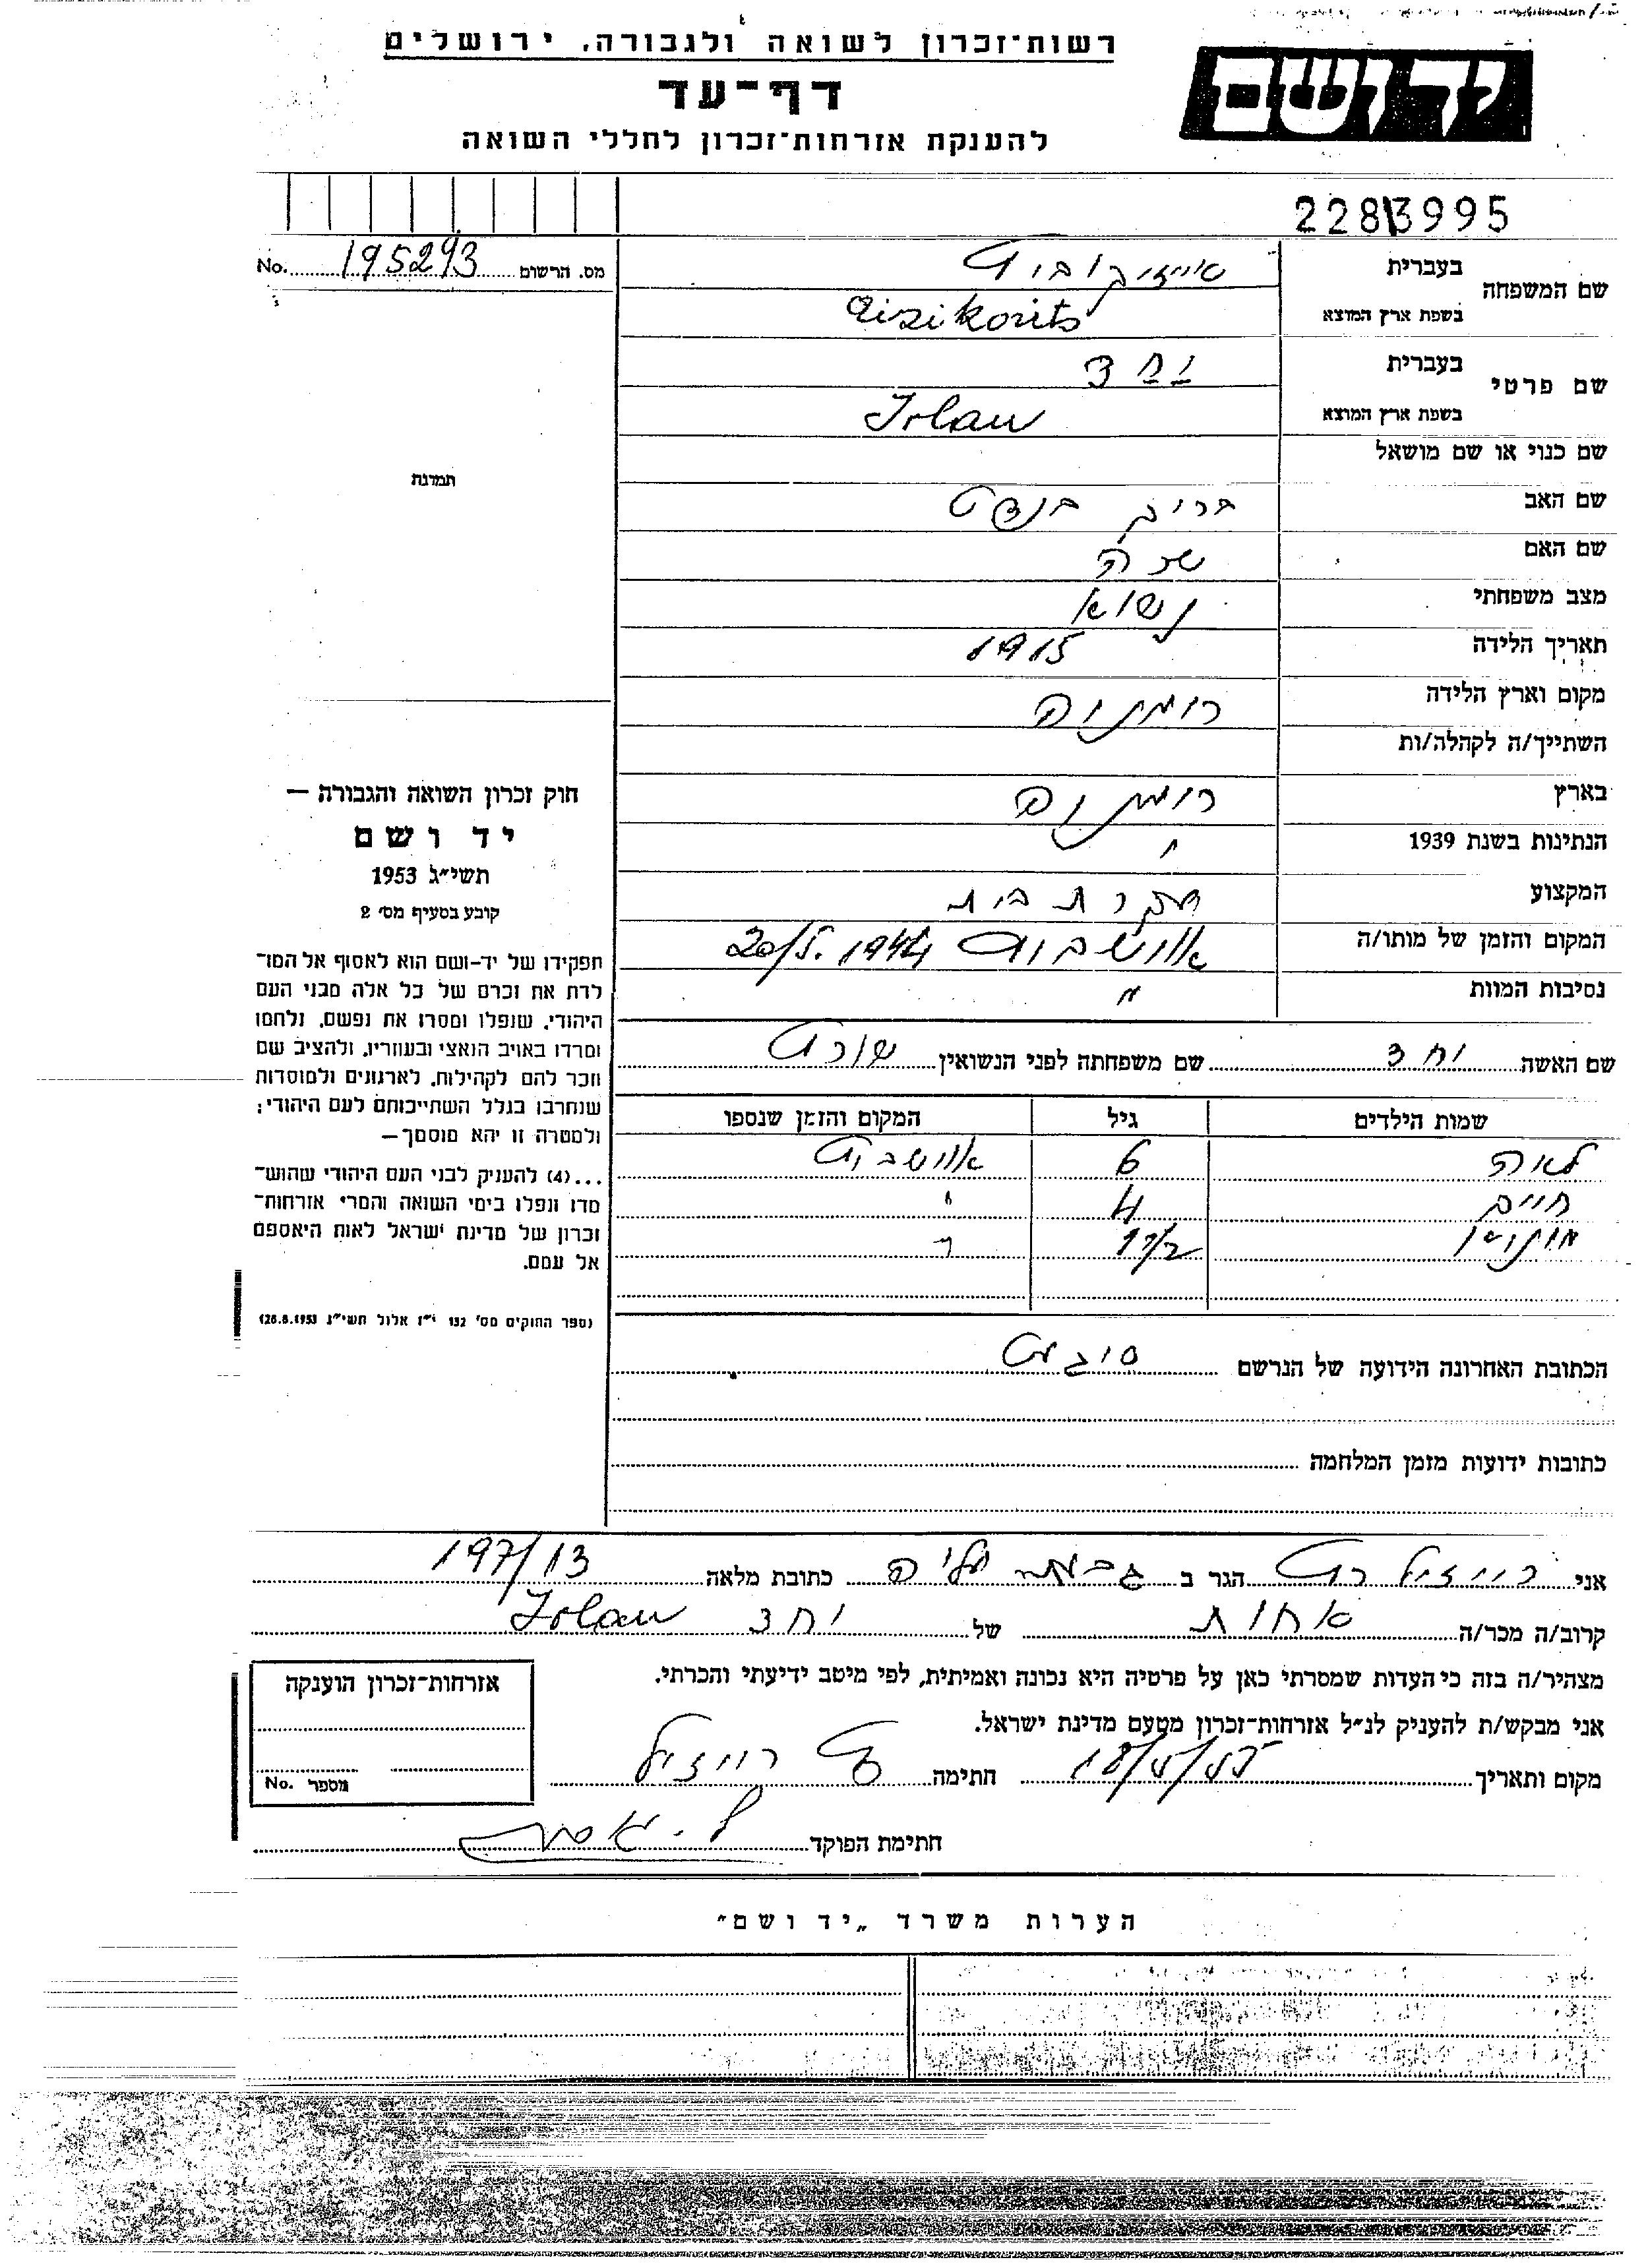 רשות־זכרון לשואה ולגבורה, ירושלים
יד ושם
דף־עד
להענקת אזרחות־זכרון לחללי השואה
2283995
No. 195293 מס. הרשום
שם המשפחה
בעברית אייזיקוביץ
בשפת ארץ המוצא Eisikovits
שם פרטי
בעברית
בשפת ארץ המוצא Iolan
שם כנוי או שם מושאל
תמונה
שם האב ברוך בנציט
שם האם שרה
מצב משפחתי נשוא
תאריך הלידה 1915
מקום וארץ הלידה רומניה
השתייך/ה לקהלה/ות
בארץ רומניה
הנתינות בשנת 1939 "
המקצוע עקרת בית
המקום והזמן של מותו/ה אושביץ 20/5.1944
נסיבות המוות "
שם האשה שם משפחתה לפני הנשואין
שמות הילדים גיל המקום והזמן שנספו
לאה 6 אושביץ
חיים 4 "
1 1/2 "
חוק זכרון השואה והגבורה —
יד ושם
תשי״ג 1953
קובע בסעיף מס׳ 2
תפקידו של יד-ושם הוא לאסוף אל המו־
לדת את זכרם של כל אלה מבני העם
היהודי, שנפלו ומסרו את נפשם, נלחמו
ומרדו באויב הנאצי ובעוזריו, ולהציב שם
וזכר להם לקהילות, לארגונים ולמוסדות
שנחרבו בגלל השתייכותם לעם היהודי;
ולמטרה זו יהא מוסמך—
...(4) להעניק לבני העם היהודי שהוש־
מדו ונפלו בימי השואה והמרי אזרחות־
זכרון של מדינת ישראל לאות היאספם
אל עמם.
(ספר החוקים מס׳ 132 י״ז אלול תשי״ג 28.8.1953)
הכתובת האחרונה הידועה של הנרשם סיגט
כתובות ידועות מזמן המלחמה
אני רייזל הגר ב גבעת עליה כתובת מלאה 197/13
קרוב/ה מכר/ה אחות של Iolan
מצהיר/ה בזה כי העדות שמסרתי כאן על פרטיה היא נכונה ואמיתית, לפי מיטב ידיעתי והכרתי.
אני מבקש/ת להעניק לנ״ל אזרחות־זכרון מטעם מדינת ישראל.
מקום ותאריך 18/5/55 חתימה רייזל
חתימת הפוקד
אזרחות־זכרון הוענקה
No. מספר
הערות משרד „יד ושם״